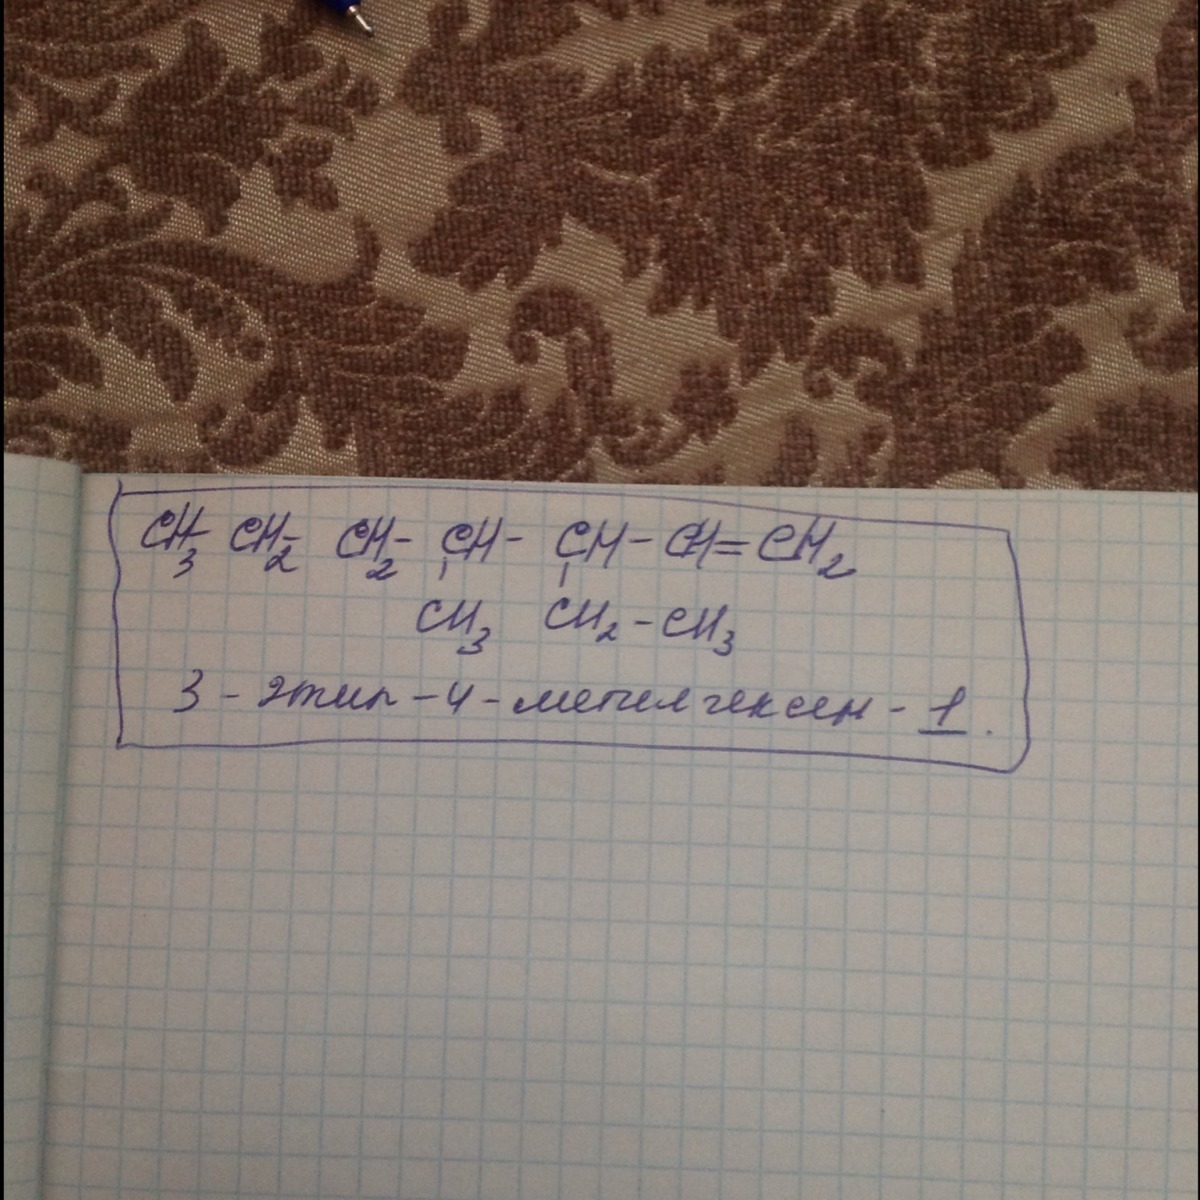 CH3-CH2-CH2-CH-CH-CH=CH2
CH3 CH2-CH3
3-этил-4-метилгексен-1.